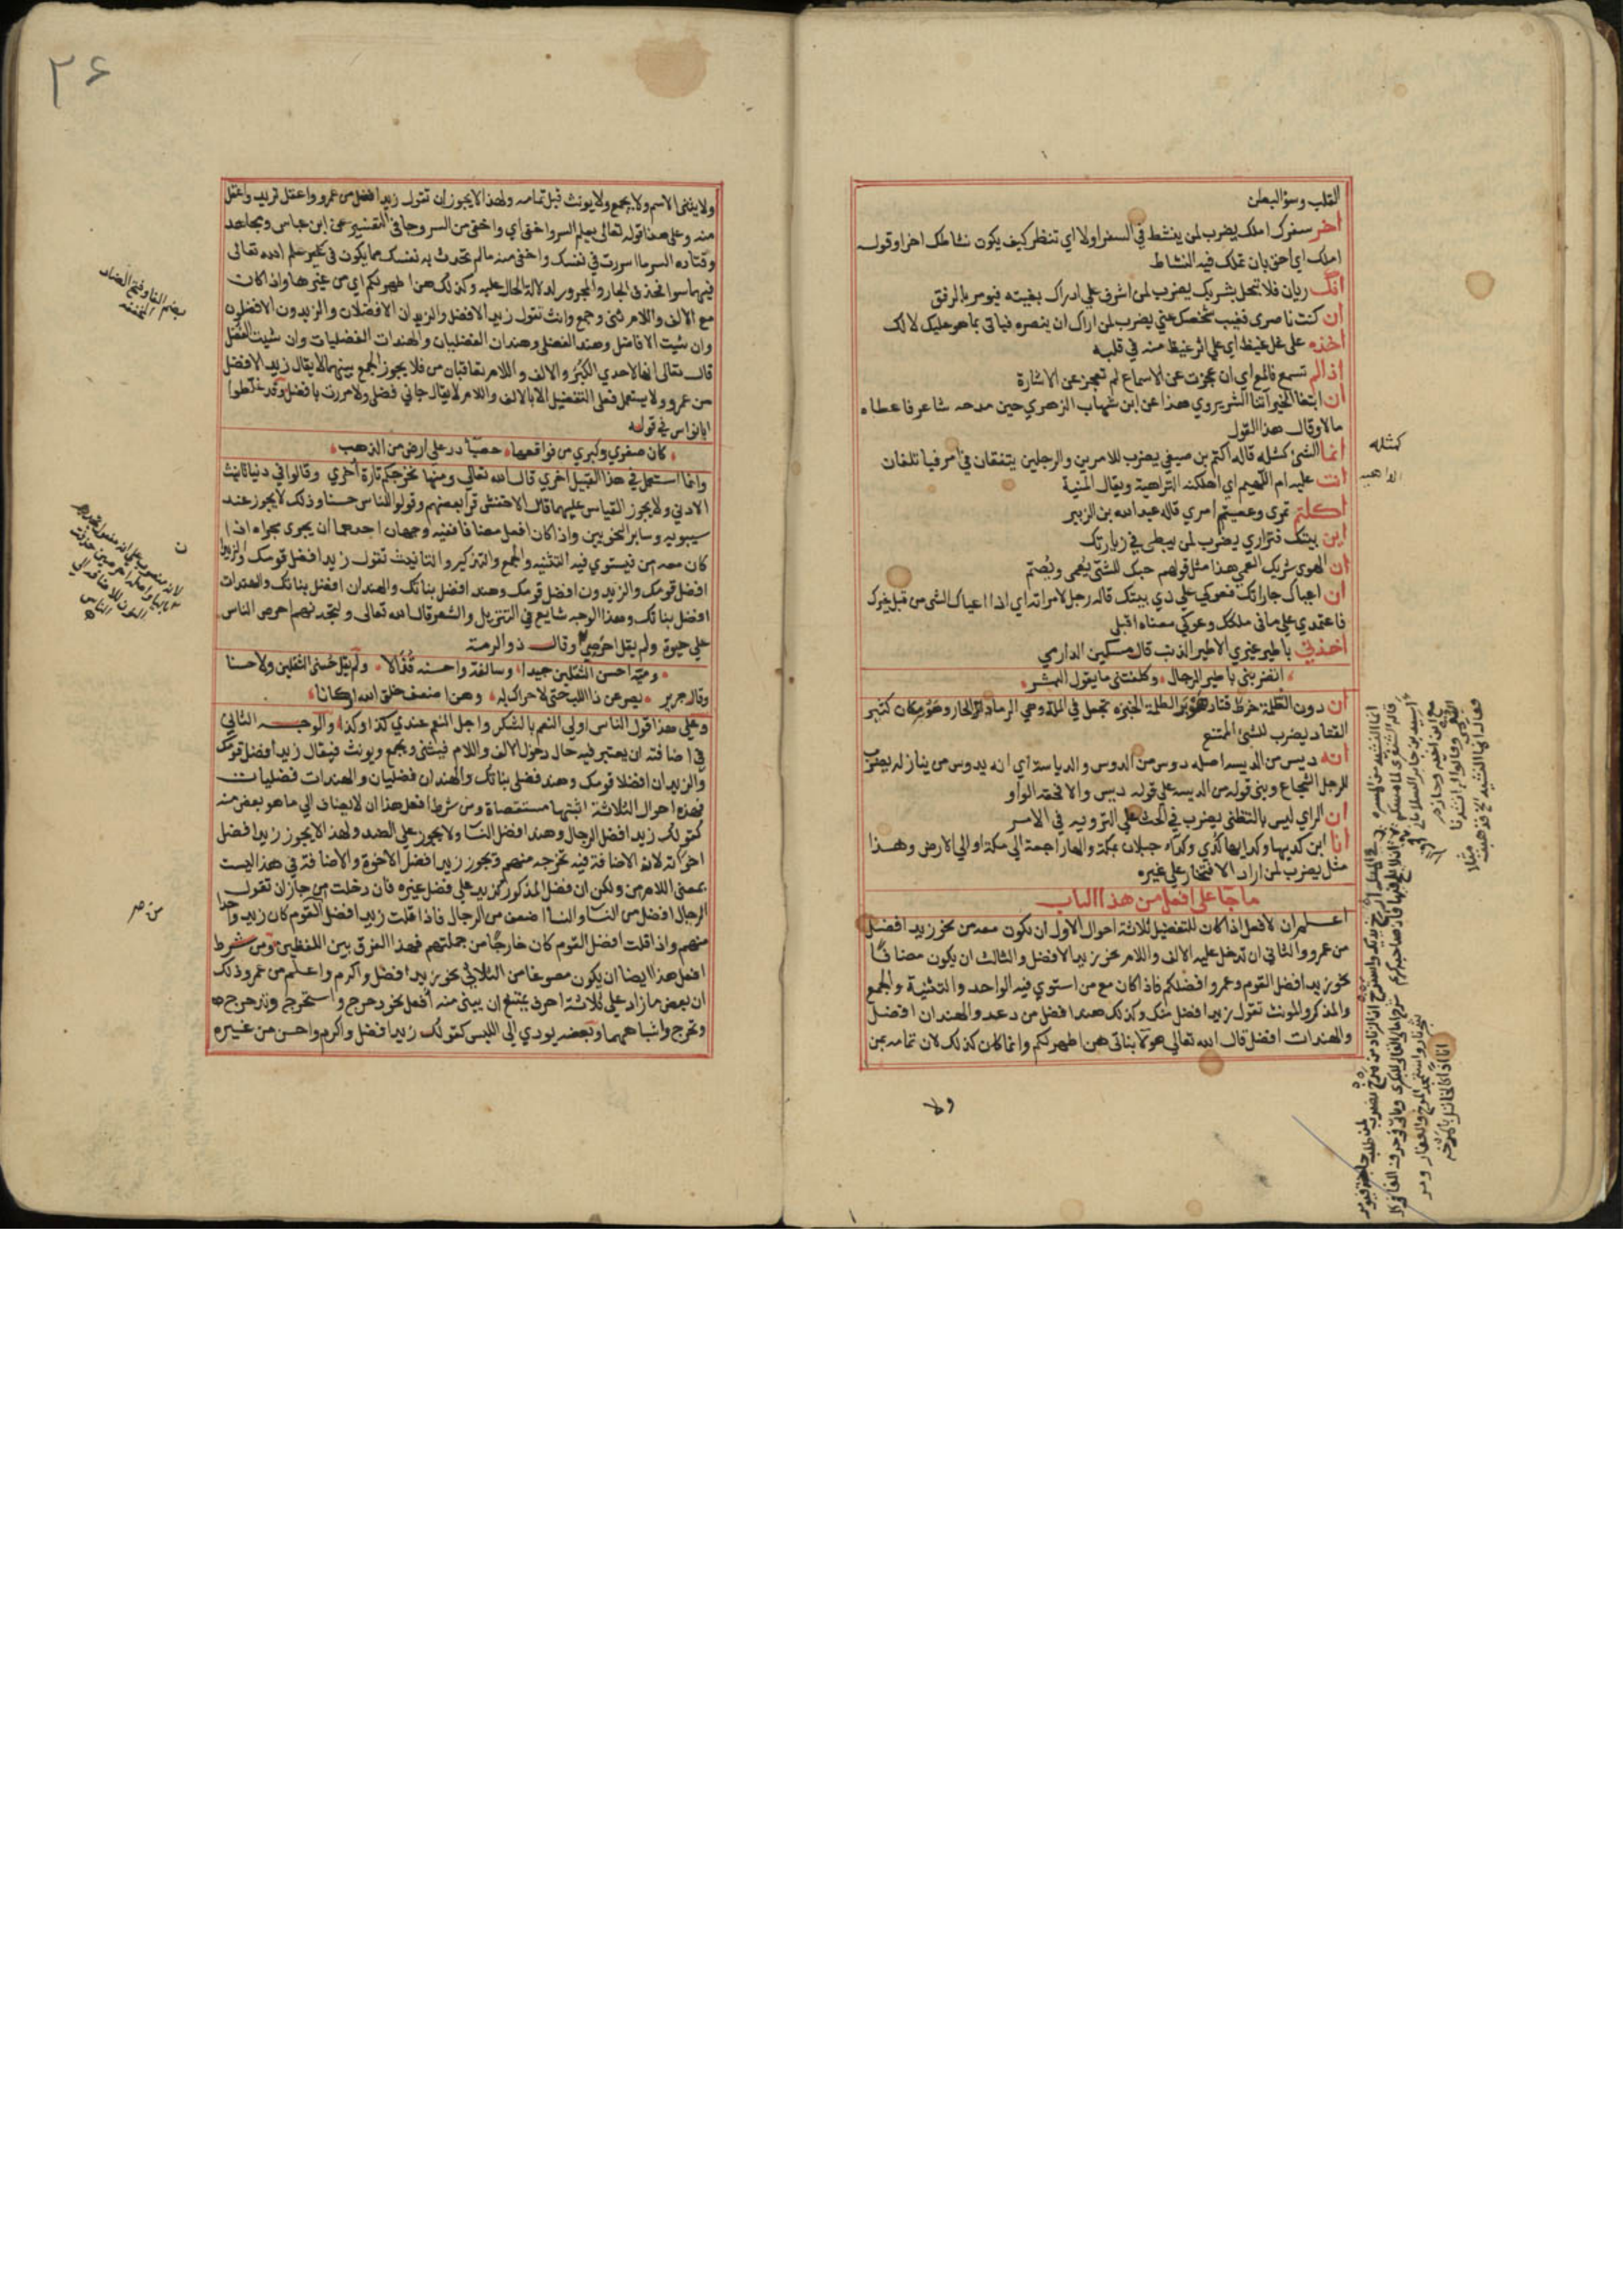 القلب وسؤ البطن
اخر سفرك املك يضرب لمن ينشط في السفر اولا اي تنظر كيف يكون نشاطك اخرا وقوله
املك اي احق بان تملك فيه النشاط
انك ريان فلا تعجل بشربك يضرب لمن اشرف على ادراك بغيته فيومر بالرفق
ان كنت ناصري فغيب شخصك عني يضرب لمن اراد ان ينصره فياتى بما هو عليك لا لك
اخذه على غل غيظ اي على اثر غيظ منه في قلبه
اذا لم تسمع فالمع اي ان عجزت عن الاسماع لم تعجز عن الاشارة
ان ابتغا الخير اتقا الشر يروي هذا عن ابن شهاب الزهري حين مدحه شاعر فاعطاه
مالا وقال هذا القول
انما الشئ كشكله قاله اكثم بن صيفي يضرب للامرين والرجلين يتفقان في امر فياتلفان
اتت عليه ام اللهيم اي اهلكته الداهية ويقال المنية
اكلتم تمري وعصيتم امري قاله عبد الله بن الزبير
اين بيتك فتزاري يضرب لمن يبطى في زيارتك
ان الهوى شريك العمى هذا مثل قولهم حبك للشئ يعمى ويصم
ان اعياك جاراتك فعوكي على ذي بيتك قاله رجل لامراته اي اذا اعياك الشى من قبل غيرك
فاعتمدي على ما في ملكك وعوكي معناه اقبلي
اخذني باطير غيري الاطير الذنب قال مسكين الدارمي
اتضربني باطير الرجال وكلفتني ما يقول البشر
ان دون الطلمة خرط قتاد هوبر الطلمة الخبزه تجعل في الملة وهي الرماد الحار وهوبر مكان كثير
القتاد يضرب للشئ الممتنع
انه ديس من الديسه اصله دوس من الدوس والدياسة اي انه يدوس من ينازله يضرب
للرجل الشجاع وبنى قوله من الديسه على قوله ديس والا فحقه الواو
ان الراي ليس بالتظنى يضرب في الحث على الترويه في الامر
انا ابن كديها وكدايها كدي وكداء جبلان بمكة والها راجعة الى مكة او الى الارض وهذا
مثل يضرب لمن اراد الافتخار على غيره
ما جا على افعل من هذا الباب
اعلم ان لافعل اذا كان للتفضيل ثلاثة احوال الاول ان يكون معه من نحو زيد افضل
من عمرو والثاني ان تدخل عليه الالف واللام نحو زيد الافضل والثالث ان يكون مضافا
نحو زيد افضل القوم وعمرو افضلكم فاذا كان مع من استوي فيه الواحد والتثنية والجمع
والمذكر والمونث تقول زيد افضل منك وكذلك هند افضل من دعد والهندان افضل
والهندات افضل قال الله تعالى هولا بناتى هن اطهر لكم وانما كان كذلك لان تمامه بمن
ولا
كشكله
الداهيه
٢٦
ولا يثنى الاسم ولا يجمع ولا يونث قبل تمامه ولهذا لا يجوز ان تقول زيد افضل من عمرو واعقل تريد واعقل
منه وعلى هذا قوله تعالى يعلم السر واخفى اي واخفى من السر وجا في التفسير عن ابن عباس ومجاهد
وقتاده السر ما اسررت في نفسك واخفى منه ما لم تحدث به نفسك مما يكون في غد علم الله تعالى
فيهما سوا فحذف الجار والمجرور لدلالة الحال عليه وكذلك هن اطهر لكم اي من غيرها واذا كان
مع الالف واللام ثنى وجمع وانث تقول زيد الافضل والزيدان الافضلان والزيدون الافضلون
وان شيت الافاضل وهند الفضلى وهندان الفضليان والهندات الفضليات وان شيت الفضل
قال تعالى انها لاحدي الكبر والالف واللام يعاقبان من فلا يجوز الجمع بينهما لا يقال زيد الافضل
من عمرو ولا يستعمل فعلى التفضيل الا بالالف واللام لا يقال جاتني فضلى ولا مررت بافضل وقد غلطوا
ابا نواس في قوله
كان صغري وكبري من فواقعها حصبآ در على ارض من الذهب
وانما استعمل في هذا القبيل اخري قال الله تعالى ومنها نخرجكم تارة اخري وقالوا في دنيا تانيث
الادني ولا يجوز القياس عليهما قال الاخفش قرا بعضهم وقولوا للناس حسنا وذلك لا يجوز عند
سيبويه وساير النحويين واذا كان افعل مضافا ففيه وجهان احدهما ان يجرى مجراه اذا
كان معه من فيستوي فيه التثنيه والجمع والتذكير والتانيث تقول زيد افضل قومك والزيدان
افضل قومك والزيدون افضل قومك وهند افضل بناتك والهندان افضل بناتك والهندات
افضل بناتك وهذا الوجه شايع في التنزيل والشعر قال الله تعالى ولتجدنهم احرص الناس
على حيوة ولم يقل احرصى وقال ذو الرمة
وميّة احسن الثقلين جيدا وسالفة واحسنه قذالا ولم يقل حسنى الثقلين ولا حسنا
وقال جرير يصرعن ذا اللب حتى لا حراك له وهن اضعف خلق الله اركانا
وعلى هذا قول الناس اولى النعم بالشكر واجل النعم عندي كذا وكذا والوجه الثاني
في اضافته ان يعتبر فيه حال دخول الالف واللام فيثنى ويجمع ويونث فيقال زيد افضل قومك
والزيدان افضلا قومك وهند فضلى بناتك والهندان فضليان والهندات فضليات
فهذه احوال الثلاثة اثبتها مستقصاة ومن شرط افعل هذا ان لا يضاف الى ما هو بعض منه
كقولك زيد افضل الرجال وهند افضل النسا ولا يجوز على الضد ولهذا لا يجوز زيد افضل
اخوته لان الاضافة فيه تخرجه منهم ويجوز زيد افضل الاخوة والاضافة في هذا ليست
بمعنى اللام من ولكن ان فضل المذكور يزيد على فضل غيره فان دخلت من جاز ان تقول
الرجال افضل من النسا والنسا اضعف من الرجال فاذا قلت زيد افضل القوم كان زيد واحدا
منهم واذا قلت افضل القوم كان خارجا من جملتهم فهذا الفرق بين اللفظين ومن شرط
افعل هذا ايضا ان يكون مصوغا من الثلاثى نحو زيد افضل واكرم واعلم من عمرو وذلك
ان بعض ما زاد على ثلاثة احرف يمتنع ان يبنى منه افعل نحو دحرج واستخرج وتدحرج
وتخرج واشباههما وبعضه يودي الى اللبس كقولك زيد افضل واكرم واحسن من غيره
بضم الفا وفتح الضاد